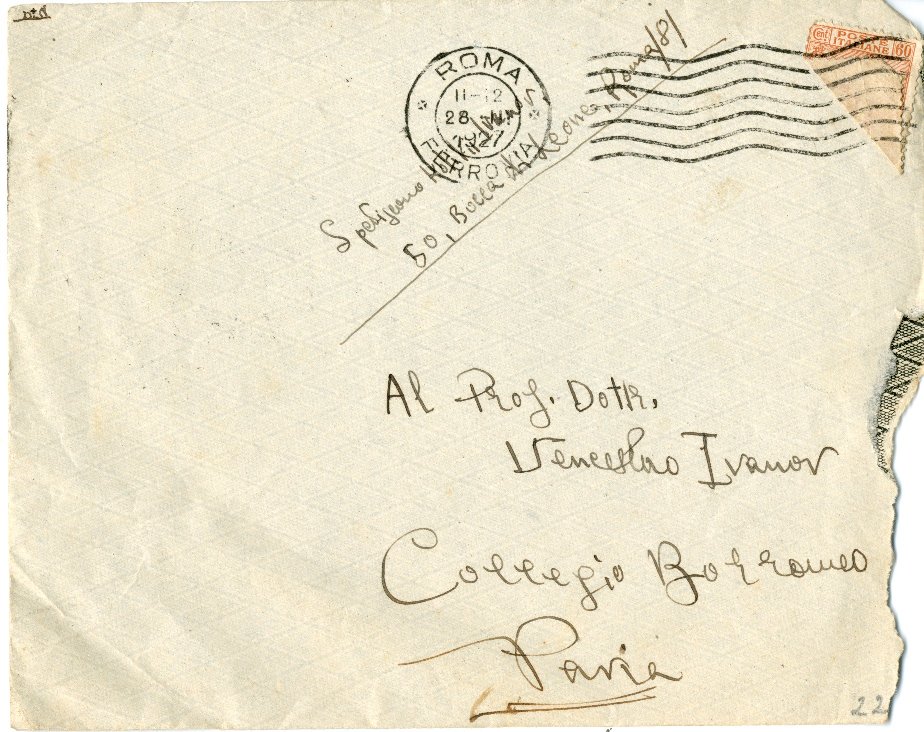 ROMA
11-12
28
FERROVIA
CENT
POSTE
ITALIANE
60
50, Bocca di Leone, Roma /8/
Al Prof. Dott.
Venceslao Ivanov
Collegio Borromeo
Pavia
22